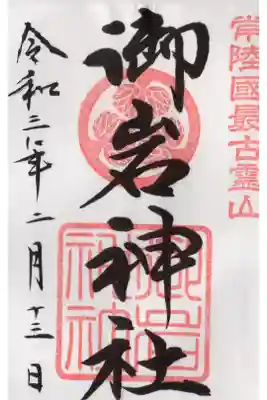 常陸國最古霊山
御岩神社
令和三年二月十三日